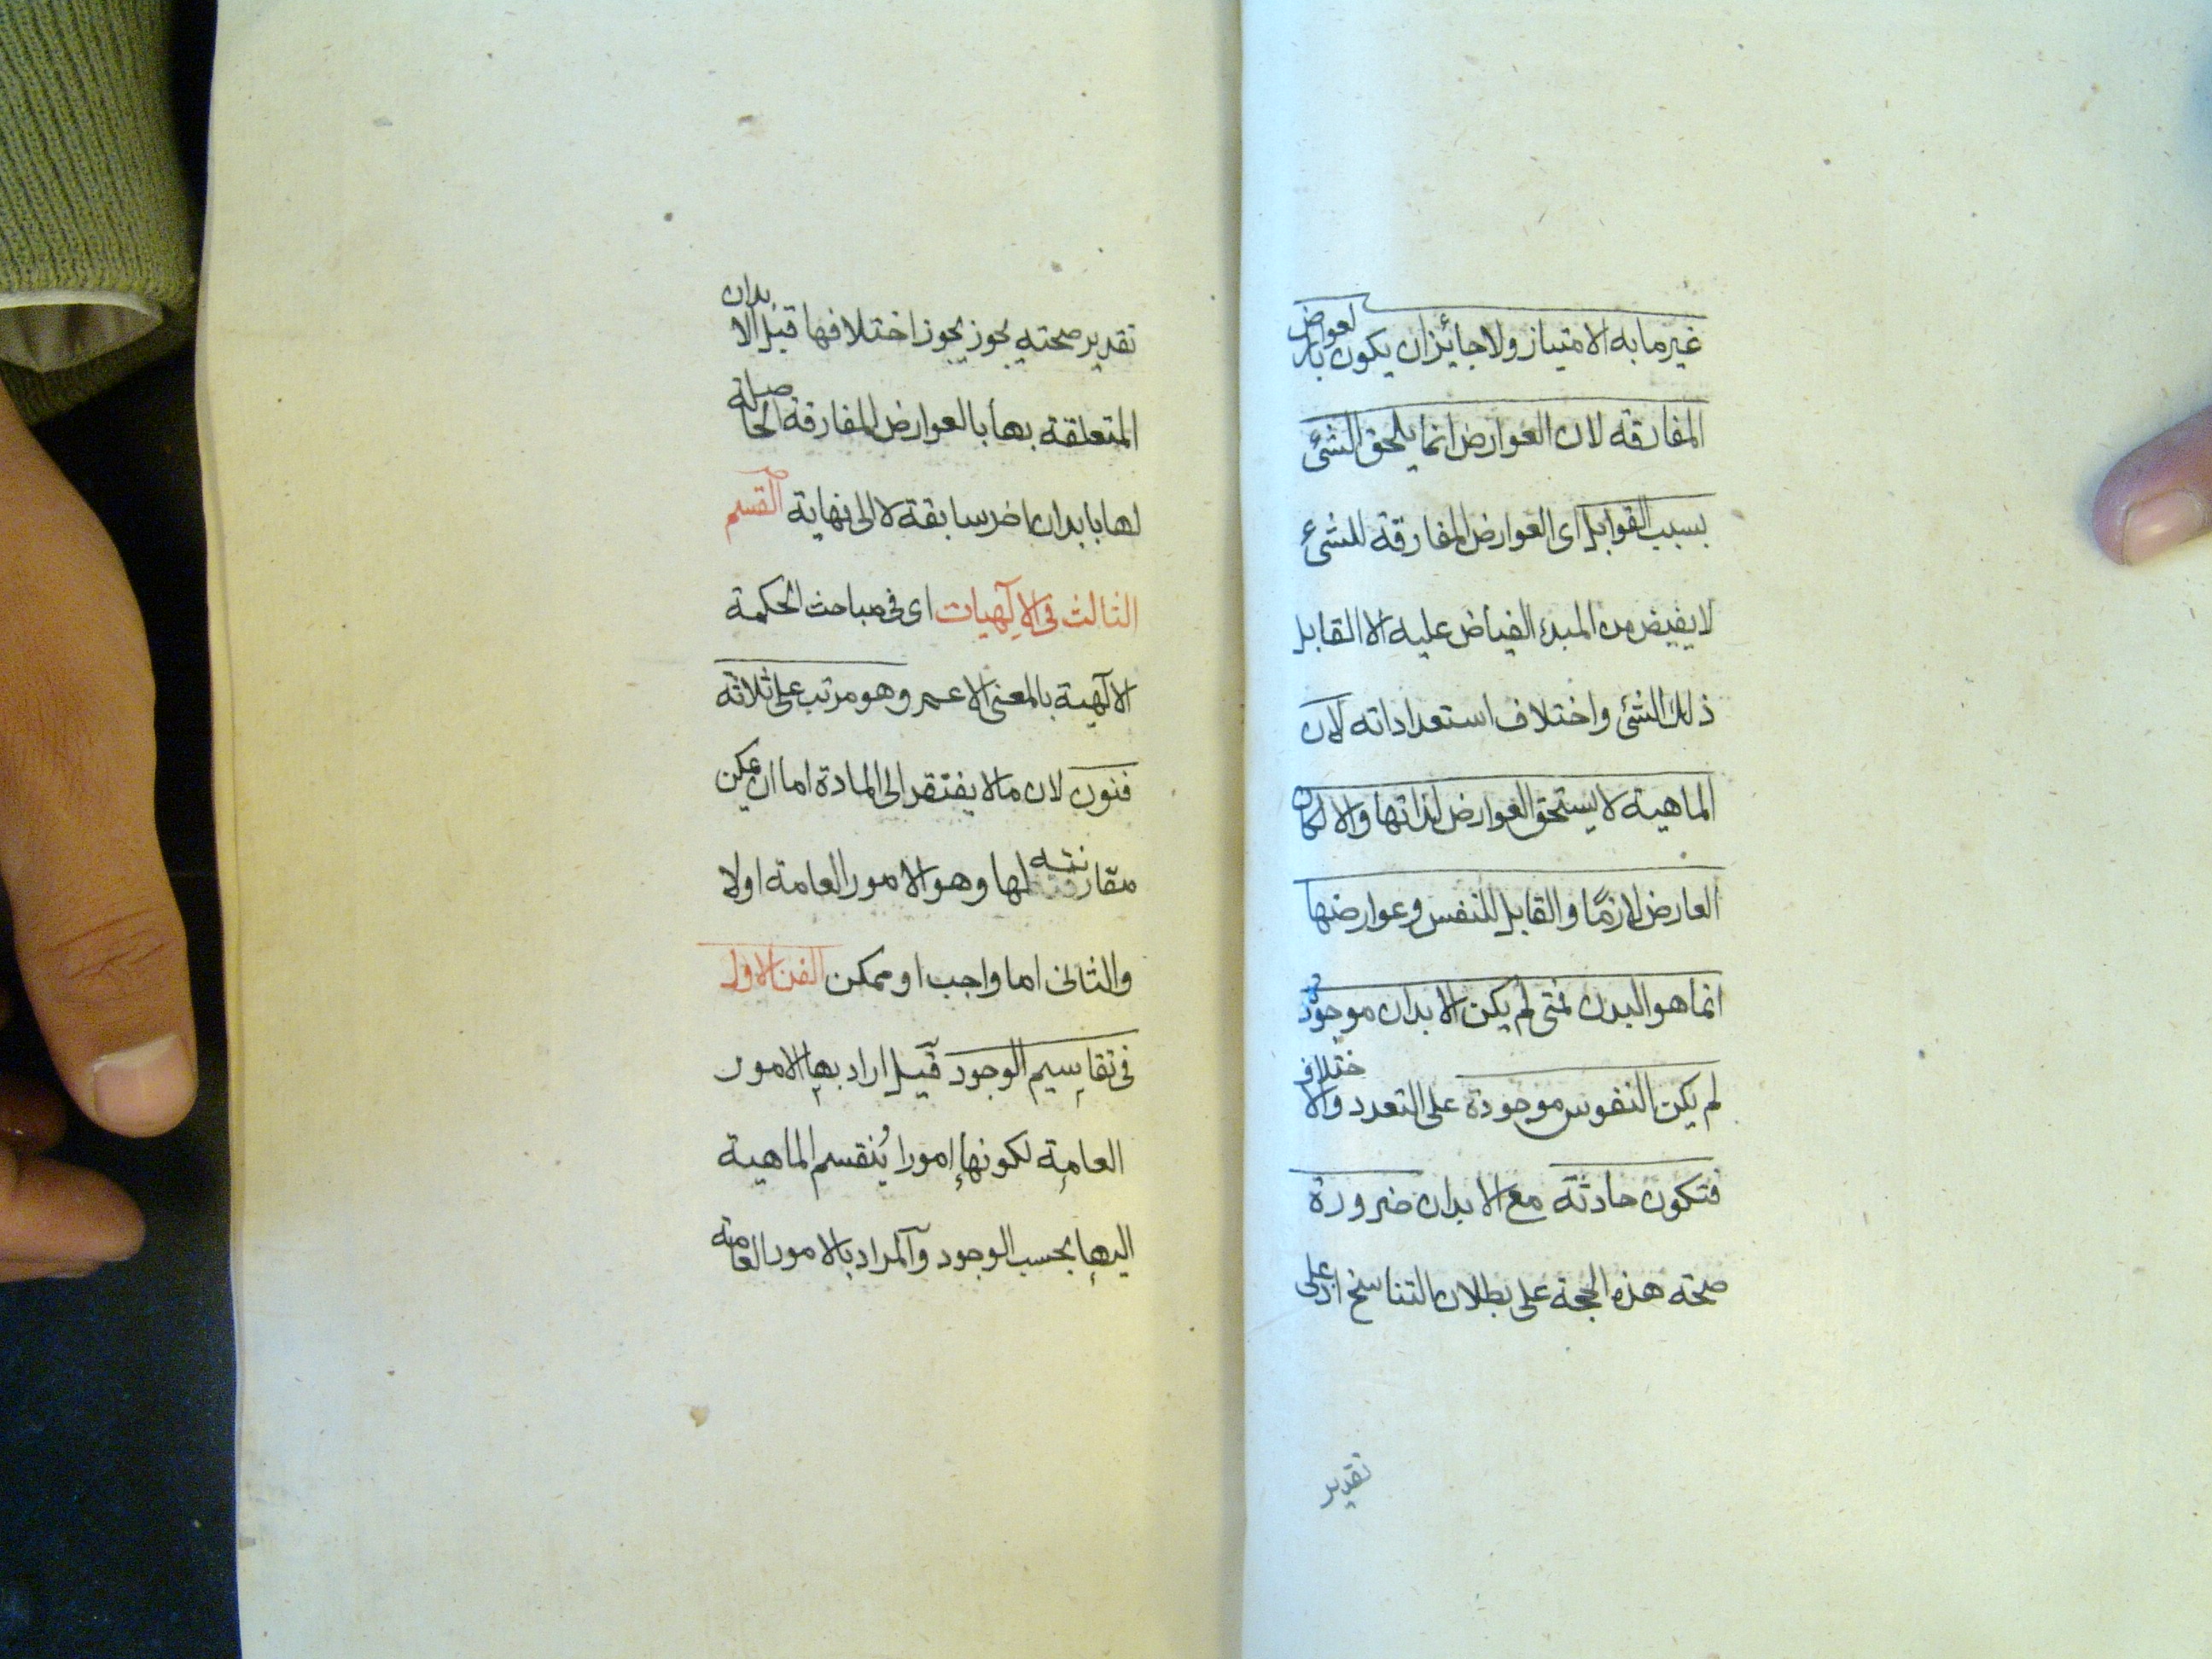 غير ما به الامتياز ولا جائز ان يكون بالعوارض
المفارقة لان العوارض انما يلحق الشئ
بسبب القوابل اى العوارض المفارقة للشئ
لا يفيض من المبدء الفياض عليه الا القابل
ذلك الشئ واختلاف استعداداته لان
الماهية لا يستحق العوارض لذاتها والا لكان
العارض لازمًا والقابل للنفس وعوارضها
انما هو البدن فمتى لم يكن الابدان موجودة
لم يكن النفوس موجودة على التعدد والاختلاف
فتكون حادثة مع الابدان ضرورة
صحة هذه الحجة على بطلان التناسخ اذ على
تقدير
تقدير صحته يجوز يجوز اختلافها قبل الابدان
المتعلقة بها بالعوارض المفارقة الحاصلة
لها بابدان اخر سابقة لا الى نهاية القسم
الثالث فى الالٓهيات اى فى مباحث الحكمة
الالٓهية بالمعنى الاعم وهو مرتب على ثلاثة
فنون لان ما لا يفتقر الى المادة اما ان يمكن
مقارنته لها وهو الامور العامة اولا
والثانى اما واجب او ممكن الفن الاول
فى تقاسيم الوجود قيل اراد بها الامور
العامة لكونها امورا ينقسم الماهية
اليها بحسب الوجود والمراد بالامور العامة